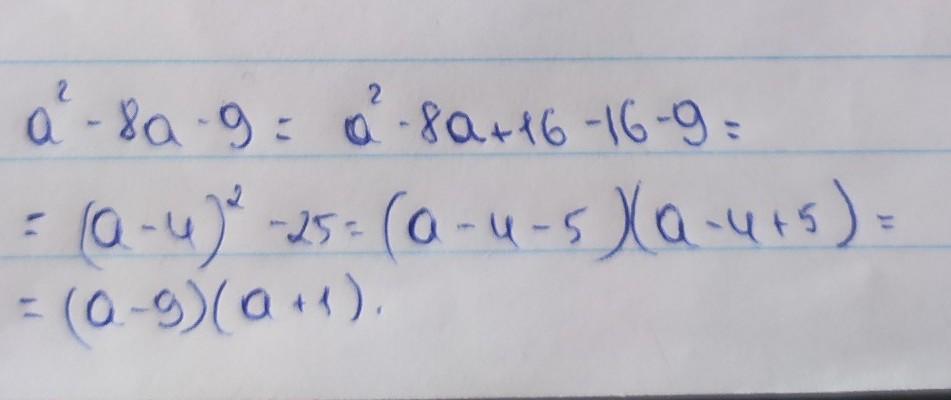 a² - 8a - 9 = a² - 8a + 16 - 16 - 9 =
= (a - 4)² - 25 = (a - 4 - 5)(a - 4 + 5) =
= (a - 9)(a + 1).